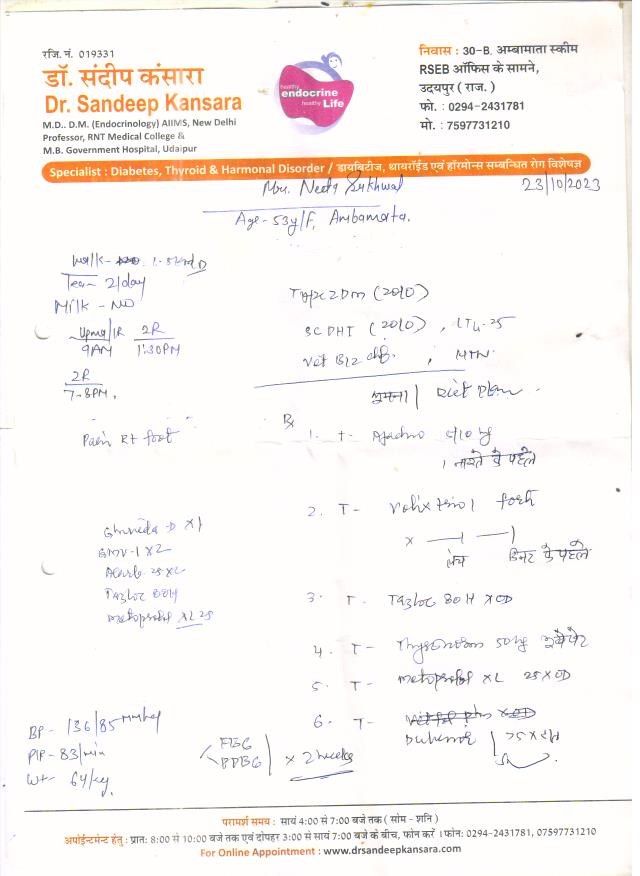 रजि. नं. 019331
डॉ. संदीप कंसारा
Dr. Sandeep Kansara
M.D.. D.M. (Endocrinology) AIIMS, New Delhi
Professor, RNT Medical College &
M.B. Government Hospital, Udaipur
healthy
endocrine
healthy Life
निवास : 30-B, अम्बामाता स्कीम
RSEB ऑफिस के सामने,
उदयपुर ( राज. )
फो. : 0294-2431781
मो. : 7597731210
Specialist : Diabetes, Thyroid & Harmonal Disorder / डायबिटीज, थायरॉईड एवं हॉरमोन्स सम्बन्धित रोग विशेषज्ञ
Mrs. Neeta Sukhwal
23/10/2023
Age - 53y/F, Ambamata.
Walk - 
Tea - 2/day
Milk - NO
Upma/1R 2R
9AM 1:30PM
2R
7-8PM.
Pain Rt foot
Type 2 Dm (2010)
SCDHT (2010), LT4-25
Vit B12 , HTN
घूमना | Diet Plan
Rx
1. T- 10 mg
1 नाश्ते से पहले
2. T- Volix trio 1 forte
x
लंच डिनर के पहले
-D x1
GMV-1 x2
25 x2
Tazloc 80H
Metoprolol XL 25
3. T. Tazloc 80H x OD
4. T- Thyronorm 50mg
5. T- Metoprolol XL 25 x OD
6. T-
BP - 136/85 mmHg
PR - 83/min
Wt - 64/kg.
FBG
PPBG x 2 weeks
परामर्श समय : सायं 4:00 से 7:00 बजे तक ( सोम - शनि )
अपॉईन्टमेन्ट हेतु : प्रात: 8:00 से 10:00 बजे तक एवं दोपहर 3:00 से सायं 7:00 बजे के बीच, फोन करें । फोन: 0294-2431781, 07597731210
For Online Appointment : www.drsandeepkansara.com